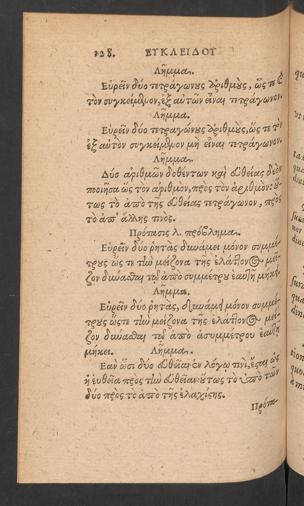 228. ΕΥΚΛΕΙΔΟΥ
Λῆμμα.
Εὑρεῖν δύο τετραγώνους ἀριθμοὺς, ὥς τε
τὸν συγκείμενον, ἐξ αὐτῶν εἶναι τετράγωνον.
Λῆμμα.
Εὑρεῖν δύο τετραγώνους ἀριθμοὺς, ὥς τε τὸν
ἐξ αὐτῶν συγκείμενον μὴ εἶναι τετράγωνον.
Λῆμμα.
Δύο ἀριθμῶν δοθέντων καὶ εὐθείας
ποιῆσαι ὡς τὸν ἀριθμὸν, πρὸς τὸν ἀριθμὸν οὕ-
τως τὸ ἀπὸ τῆς εὐθείας τετράγωνον, πρὸς
τὸ ἀπ' ἄλλης τινός.
Πρότασις λ. πρόβλημα.
Εὑρεῖν δύο ῥητὰς δυνάμει μόνον συμμέ-
τρους ὥς τε τὴν μείζονα τῆς ἐλάττονος μεῖ-
ζον δύνασθαι τῷ ἀπὸ συμμέτρου ἑαυτῇ μήκει.
Λῆμμα.
Εὑρεῖν δύο ῥητὰς, δυνάμει μόνον συμμέ-
τρους ὥς τε τὴν μείζονα τῆς ἐλάττονος μεῖ-
ζον δύνασθαι τῷ ἀπὸ ἀσυμμέτρου ἑαυτῇ
μήκει. Λῆμμα.
Ἐὰν ὦσι δύο εὐθεῖαι ἐν λόγῳ τινὶ, ἔσται ὡς
ἡ εὐθεῖα πρὸς τὴν εὐθεῖαν οὕτως τὸ ὑπὸ τῶν
δύο πρὸς τὸ ἀπὸ τῆς ἐλαχίσης.
Πρότα-